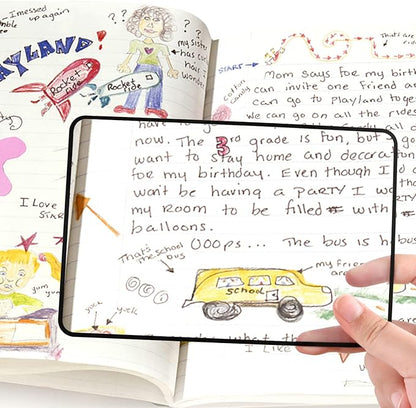 I messed
up again
??
my sister
has
hair
I
wonder
PLAYLAND!
Rocket
Ride
Rocket
Ride
I Love
yum
yum
yum
START
cotton
candy
That's are
Mom says for my birth
can invite one friend a
can go to playland toge
we can go on all the rides
now. The 3rd grade is fun, but
want to stay home and decora
for my birthday. Even though I
won't be having a PARTY I w
my room to be filled with
balloons.
OOOps... The bus is h
That's the school
bus
my frie
are
School
yuck
yuck
what th
I Like